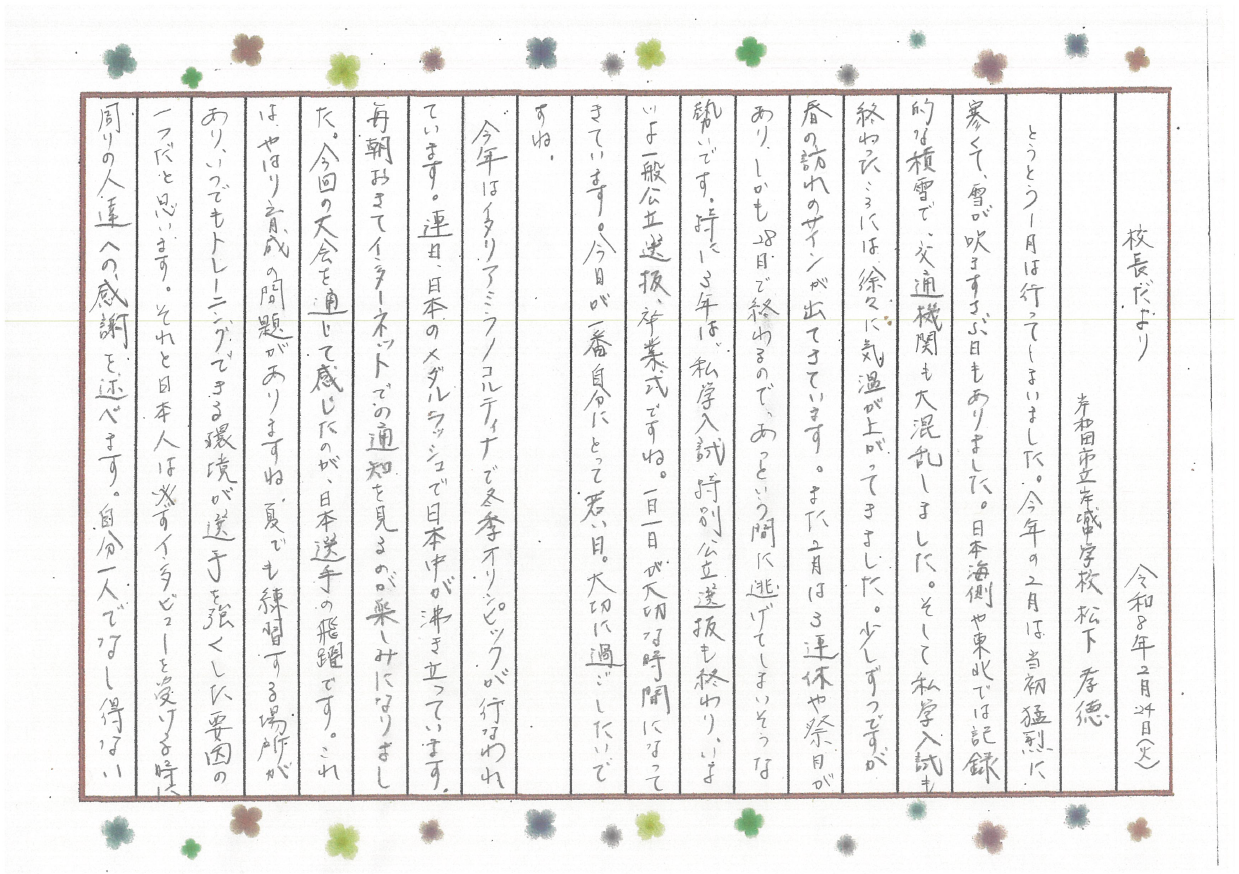 校長だより　令和8年2月24日(火)
岸和田市立岸城中学校 松下 孝徳
とうとう1月は行ってしまいました。今年の2月は、当初猛烈に
寒くて、雪が吹きすさぶ日もありました。日本海側や東北では記録
的な積雪で、交通機関も大混乱しました。そして私学入試も
終わったころには徐々に気温が上がってきました。少しずつですが
春の訪れのサインが出てきています。また2月は3連休や祭日が
あり、しかも28日で終わるので、あっという間に逃げてしまいそうな
勢いです。特に3年は、私学入試、特別公立選抜も終わり、いよ
いよ一般公立選抜、卒業式ですね。一日一日が大切な時間になって
きています。今日が一番自分にとって若い日。大切に過ごしたいで
すね。
今年はイタリアミラノコルティナで冬季オリンピックが行なわれ
ています。連日、日本のメダルラッシュで日本中が沸き立っています。
毎朝おきてインターネットでの通知を見るのが楽しみになりまし
た。今回の大会を通じて感じたのが、日本選手の飛躍です。これ
は、やはり育成の問題がありますね。夏でも練習する場所が
あり、いつでもトレーニングできる環境が選手を強くした要因の
一つだと思います。それと日本人は必ずインタビューを受ける時に
周りの人達への感謝を述べます。自分一人でなし得ない